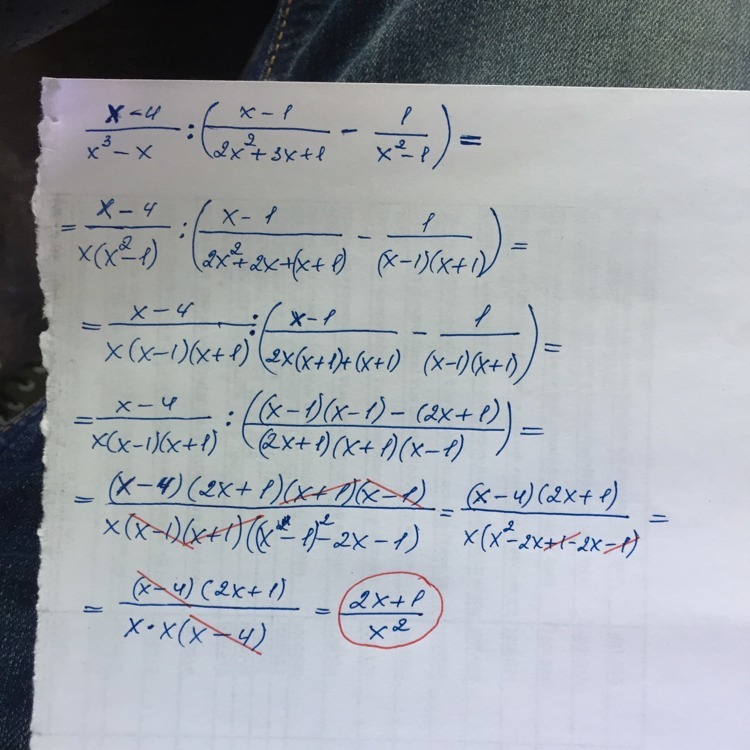 x-4/(x³-x) : ((x-1)/(2x²+3x+1) - 1/(x²-1)) =
= (x-4)/(x(x²-1)) : ((x-1)/(2x²+2x+(x+1)) - 1/((x-1)(x+1))) =
= (x-4)/(x(x-1)(x+1)) : ((x-1)/(2x(x+1)+(x+1)) - 1/((x-1)(x+1))) =
= (x-4)/(x(x-1)(x+1)) : (((x-1)(x-1)-(2x+1))/((2x+1)(x+1)(x-1))) =
= ((x-4)(2x+1)(x+1)(x-1))/(x(x-1)(x+1)((x-1)²-2x-1)) = ((x-4)(2x+1))/(x(x²-2x+1-2x-1)) =
= ((x-4)(2x+1))/(x·x(x-4)) = (2x+1)/x²